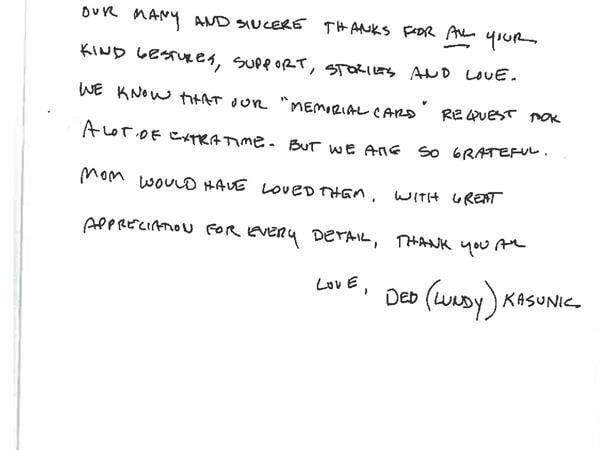 OUR MANY AND SINCERE THANKS FOR ALL YOUR
KIND GESTURES, SUPPORT, STORIES AND LOVE.
WE KNOW THAT OUR "MEMORIAL CARD" REQUEST TOOK
A LOT OF EXTRA TIME - BUT WE ARE SO GRATEFUL.
MOM WOULD HAVE LOVED THEM. WITH GREAT
APPRECIATION FOR EVERY DETAIL, THANK YOU ALL
LOVE, DED (LUNDY) KASUNIC